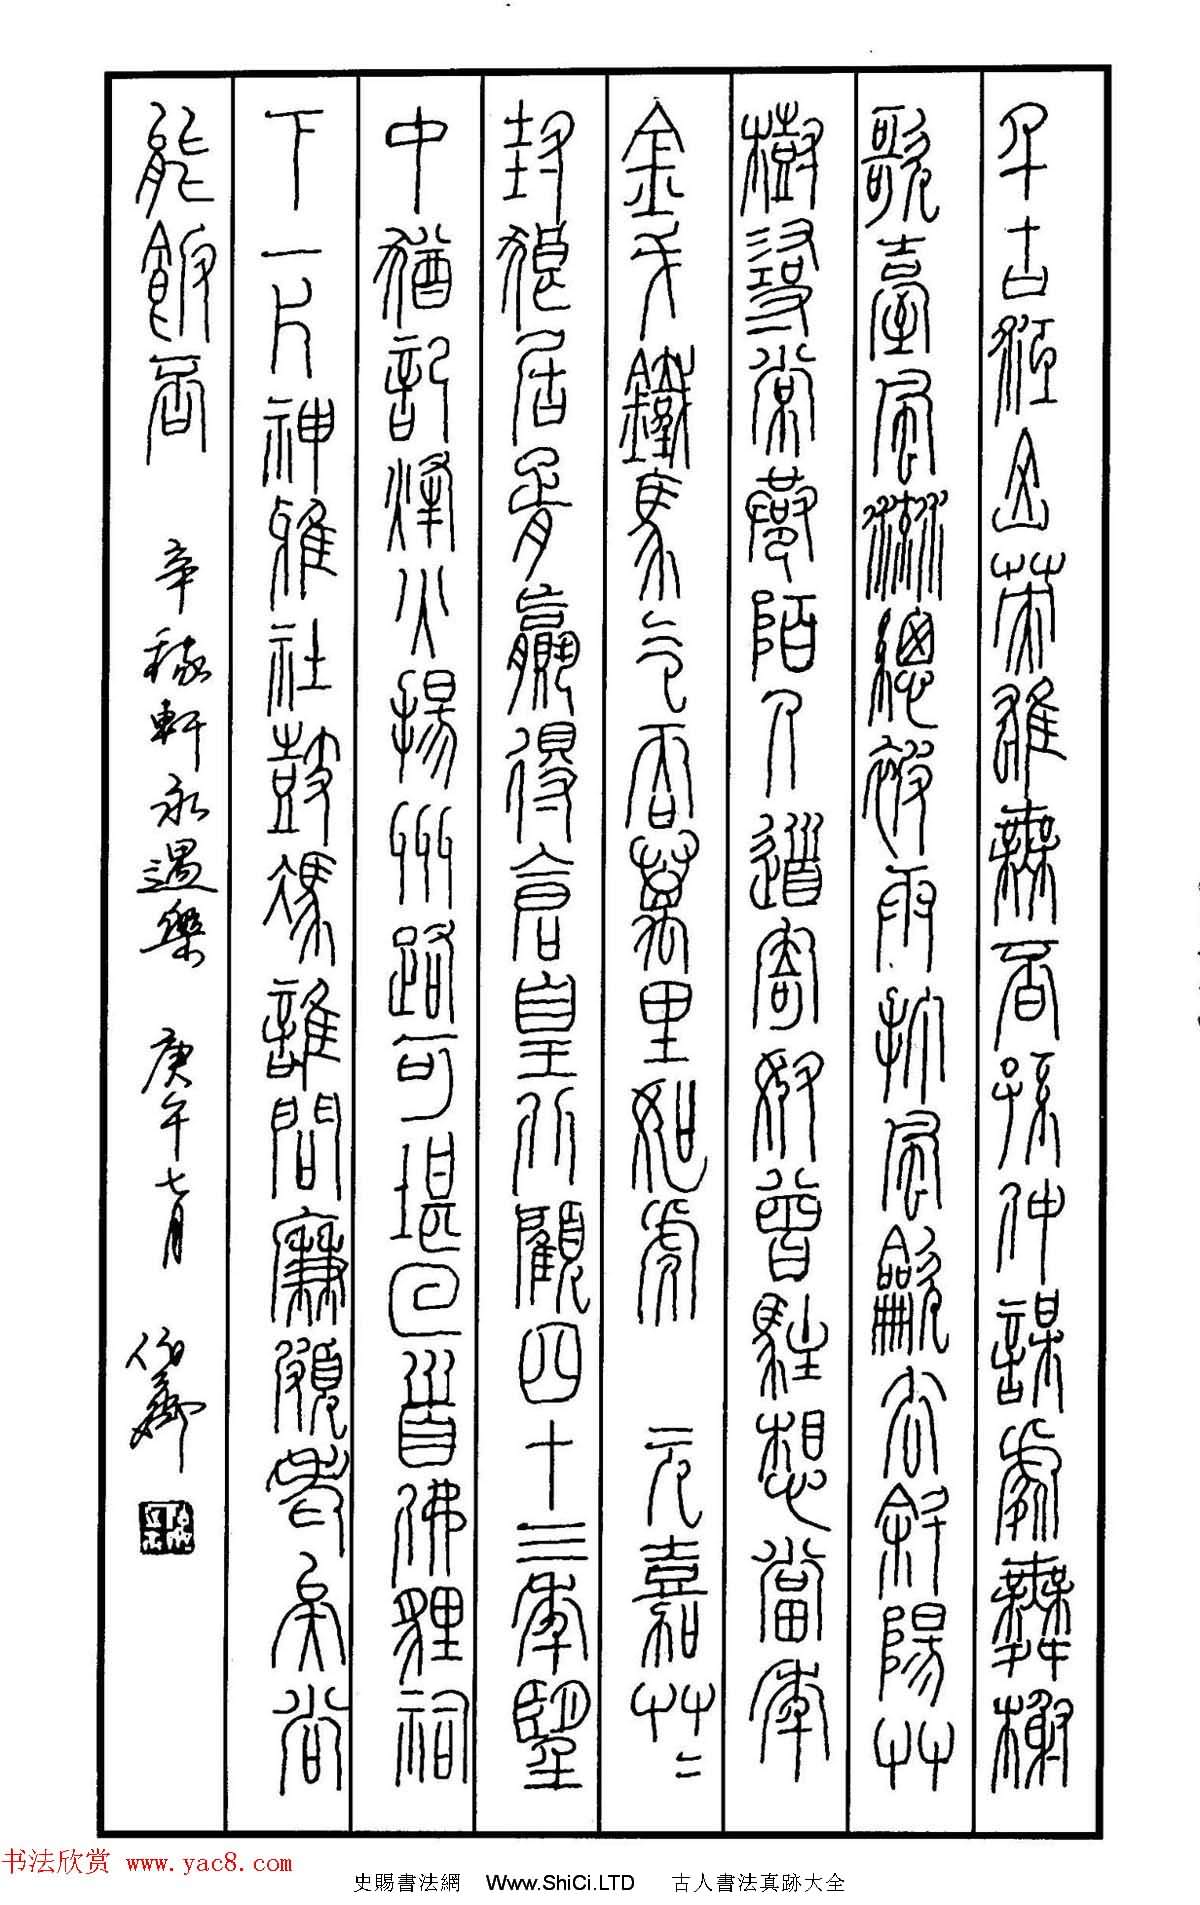 千古江山英雄無覓孫仲謀處舞榭
歌臺風流總被雨打風吹去斜陽艸
樹尋常巷陌人道寄奴曾駐想當年
金戈鐵馬气吞萬里如虎 元嘉艸〻
封狼居胥贏得倉皇北顧四十三年望
中猶記烽火揚州路可堪回首佛貍祠
下一片神鴉社鼓憑誰問廉頗老矣尚
能飯否 辛稼軒永遇樂 庚午七月
书法欣赏 www.yac8.com
史賜書法網 Www.ShiCi.LTD 古人書法真跡大全